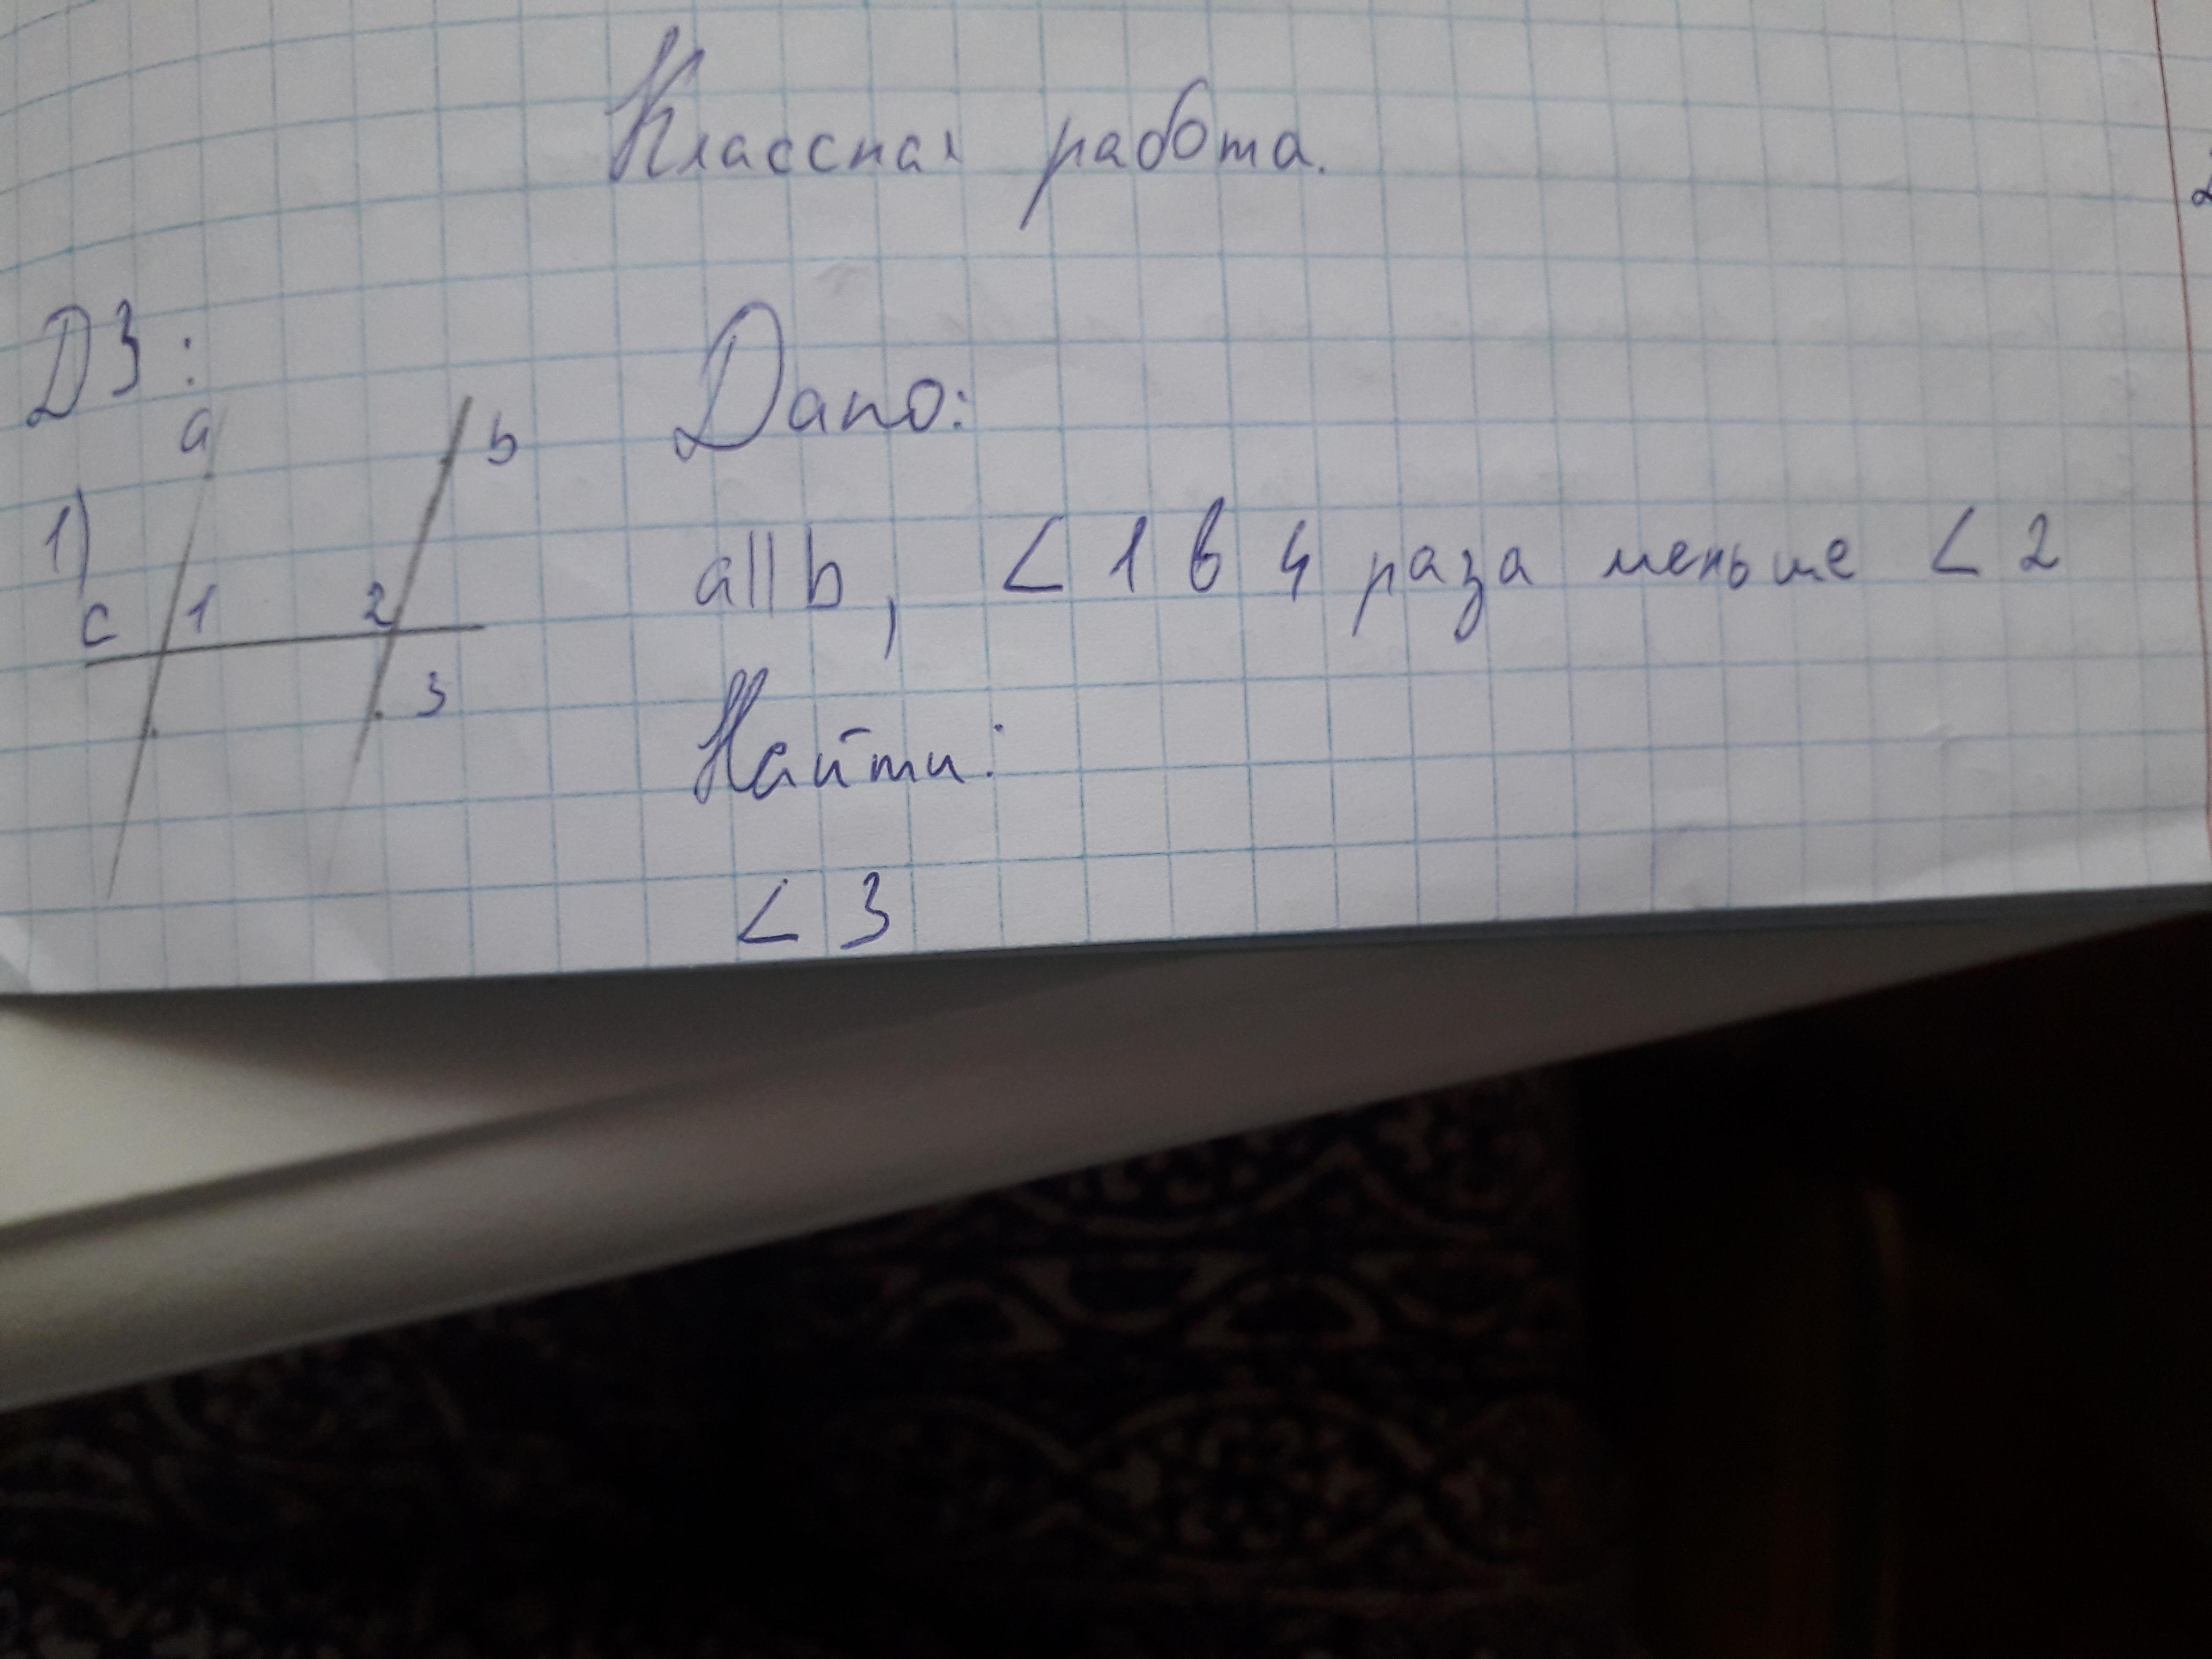 Классная работа.
ДЗ:
1)
a
b
c
1
2
3
Дано:
a||b, <1 в 4 раза меньше <2
Найти:
<3